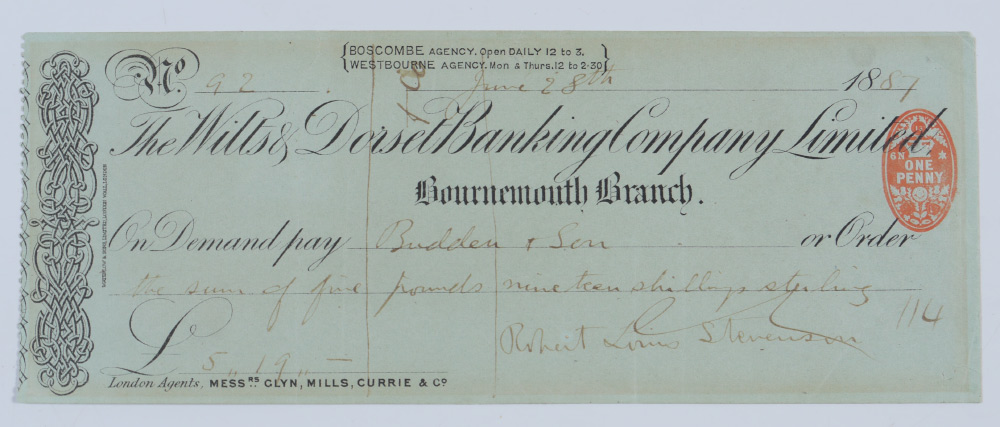 BOSCOMBE AGENCY. Open DAILY 12 to 3.
WESTBOURNE AGENCY. Mon & Thurs. 12 to 2·30
No. 92. June 28th 1887
The Wilts & Dorset Banking Company Limited,
Bournemouth Branch.
ONE
PENNY
On Demand pay Budden & Son or Order
the sum of five pounds nineteen shillings sterling
114
Robert Louis Stevenson
£ 5 ,, 19 ,, —
London Agents, MESSRS. GLYN, MILLS, CURRIE & Co